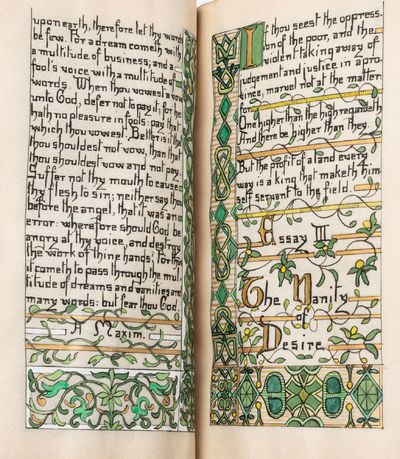 upon earth, therefore let thy words
be few. For a dream cometh with
a multitude of business; and a
fool's voice with a multitude of
words. When thou vowest a vow
unto God, defer not to pay it; for he
hath no pleasure in fools: pay that
which thou vowest. Better is it that
thou shouldest not vow, than that
thou shouldest vow and not pay.
Suffer not thy mouth to cause
thy flesh to sin; neither say thou
before the angel, that it was an
error: wherefore should God be
angry at thy voice, and destroy
the work of thine hands? For thus
it cometh to pass through the mul-
titude of dreams and vanities are
many words: but fear thou God.
A Maxim.
If thou seest the oppress-
ion of the poor, and the
violent taking away of
judgement and justice in a pro-
vince, marvel not at the matter:
for
One higher than the high regardeth
And there be higher than they
But the profit of a land every
way is a king that maketh him
self servant to the field.
Essay III
The Vanity
of
Desire